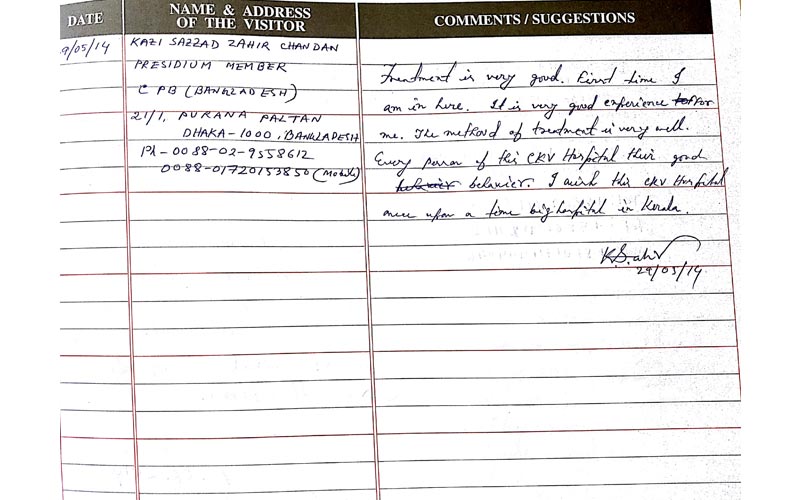 DATE
NAME & ADDRESS
OF THE VISITOR
COMMENTS / SUGGESTIONS
9/05/14
KAZI SAZZAD ZAHIR CHANDAN
PRESIDIUM MEMBER
C PB (BANGLADESH)
21/1, PURANA PALTAN
DHAKA-1000, BANGLADESH
Ph-0088-02-9558612
0088-01720153850 (Mobile)
Treatment is very good. First time I
am in here. It is very good experience for
me. The method of treatment is very well.
Every person of this CKV Hospital their good
behavier. I wish this CKV Hospital
once upon a time big hospital in Kerala.
29/05/14